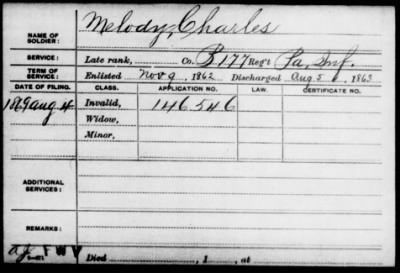 NAME OF SOLDIER: Melody, Charles
SERVICE: Late rank, Co. B 177 Reg't Pa, Inf.
TERM OF SERVICE: Enlisted Nov 9, 1862 Discharged Aug 5, 1863
DATE OF FILING. CLASS. APPLICATION NO. LAW. CERTIFICATE NO.
Aug 4 Invalid, 146546
Widow,
Minor,
ADDITIONAL SERVICES:
REMARKS:
Died , 1 , at